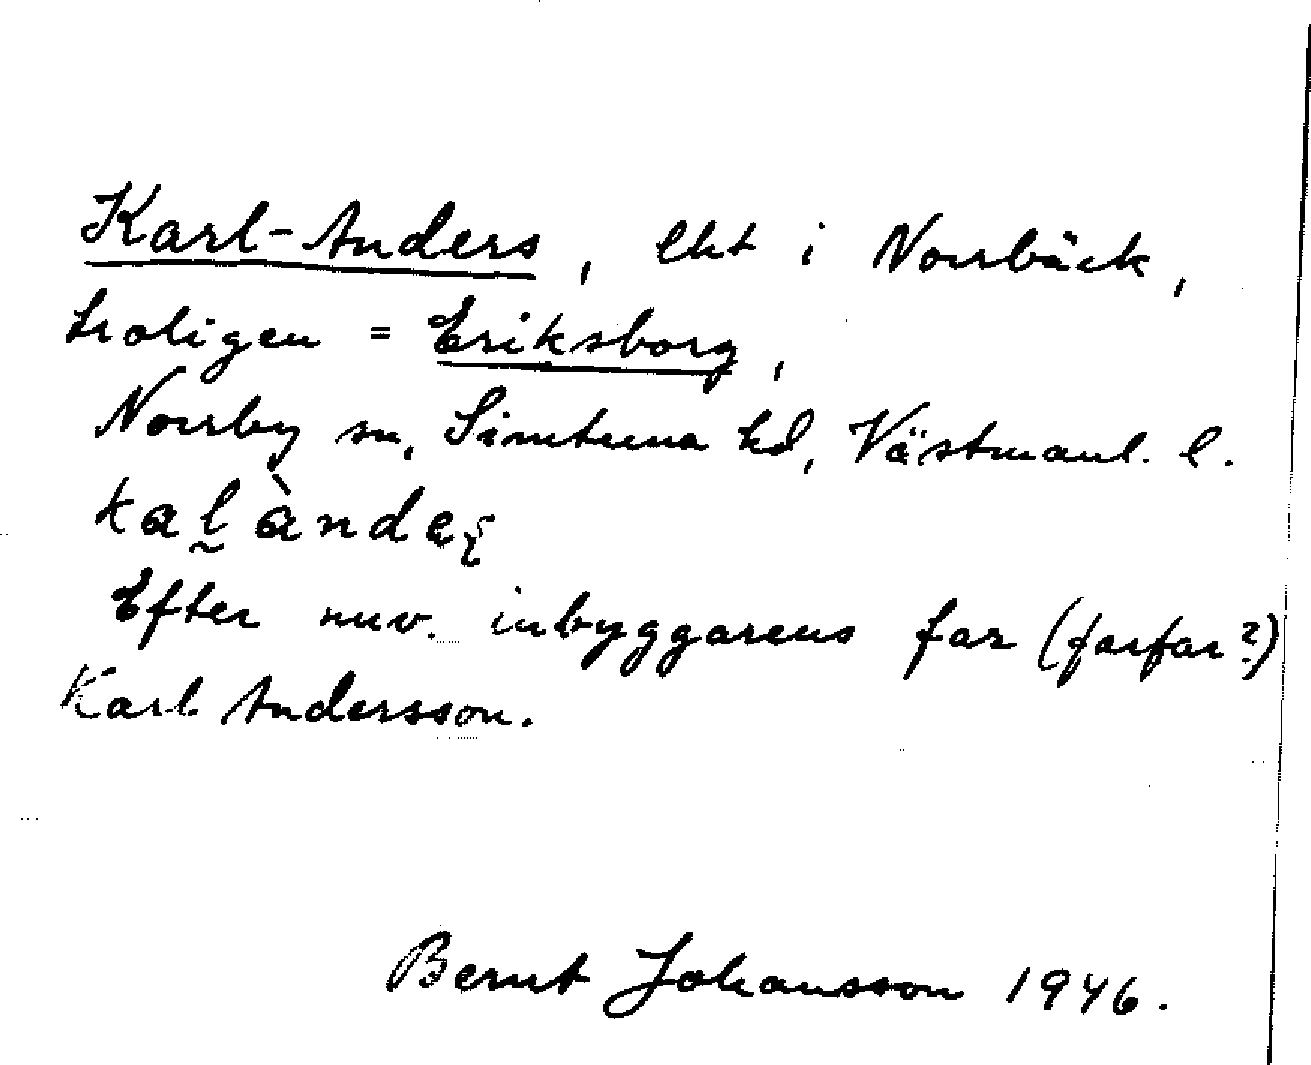 Karl-Anders, lht i Norrbäck,
troligen = Eriksborg,
Norrby sn, Simtuna hd, Västmanl. l.
kaḷàndeʂ
Efter nuv. inbyggarens far (farfar?)
Karl Andersson.
Bernt Johansson 1946.